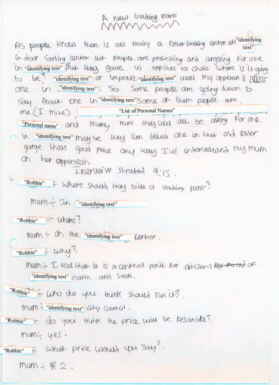 A new trading centre
As people know there is not really a good trading centre at "Identifying text"
In door Sorting center but people are protesting and arguing for one
in "Identifying text" But they gave in replied to chose where it is going
to be "Identifying text" or beyond "Identifying text" well my opinion is
one in "Identifying text" So Some people are going down to
say found one in "Identifying text" Some of them people are
me (I mine) "List of Personal Names"
"Personal names" and many more they will all be asking for one
in "Identifying text" maybe they can have one in two and ever
have their good mind any ways I've interviewed my mum
on her opinion
Interview started 9:15
"Robbie" - where should they build a trading point?
mum - In "Identifying text"
"Robbie" - where?
mum - On the "Identifying text" center
"Robbie" - why?
mum - I said that is a central point for
"Identifying text" north and south.
"Robbie" - who do you think should run it?
mum - "Identifying text" city council.
"Robbie" - do you think the price will be reasonable?
mum - yes.
"Robbie" - what price would you say?
mum - $2.